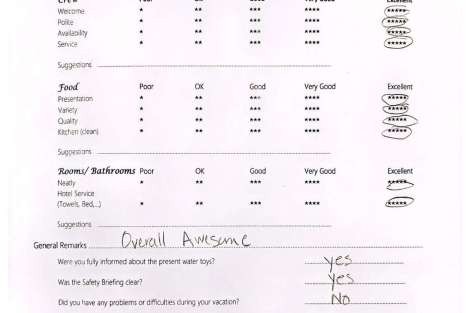 Crew Poor OK Good Very Good Excellent
Welcome * ** *** **** *****
Polite * ** *** **** *****
Availability * ** *** **** *****
Service * ** *** **** *****
Suggestions
Food Poor OK Good Very Good Excellent
Presentation * ** *** **** *****
Variety * ** *** **** *****
Quality * ** *** **** *****
Kitchen (clean) * ** *** **** *****
Suggestions
Rooms/Bathrooms Poor OK Good Very Good Excellent
Neatly * ** *** **** *****
Hotel Service
(Towels, Bed,...) * ** *** **** *****
Suggestions
General Remarks Overall Awesome
Were you fully informed about the present water toys? yes
Was the Safety Briefing clear? yes
Did you have any problems or difficulties during your vacation? No